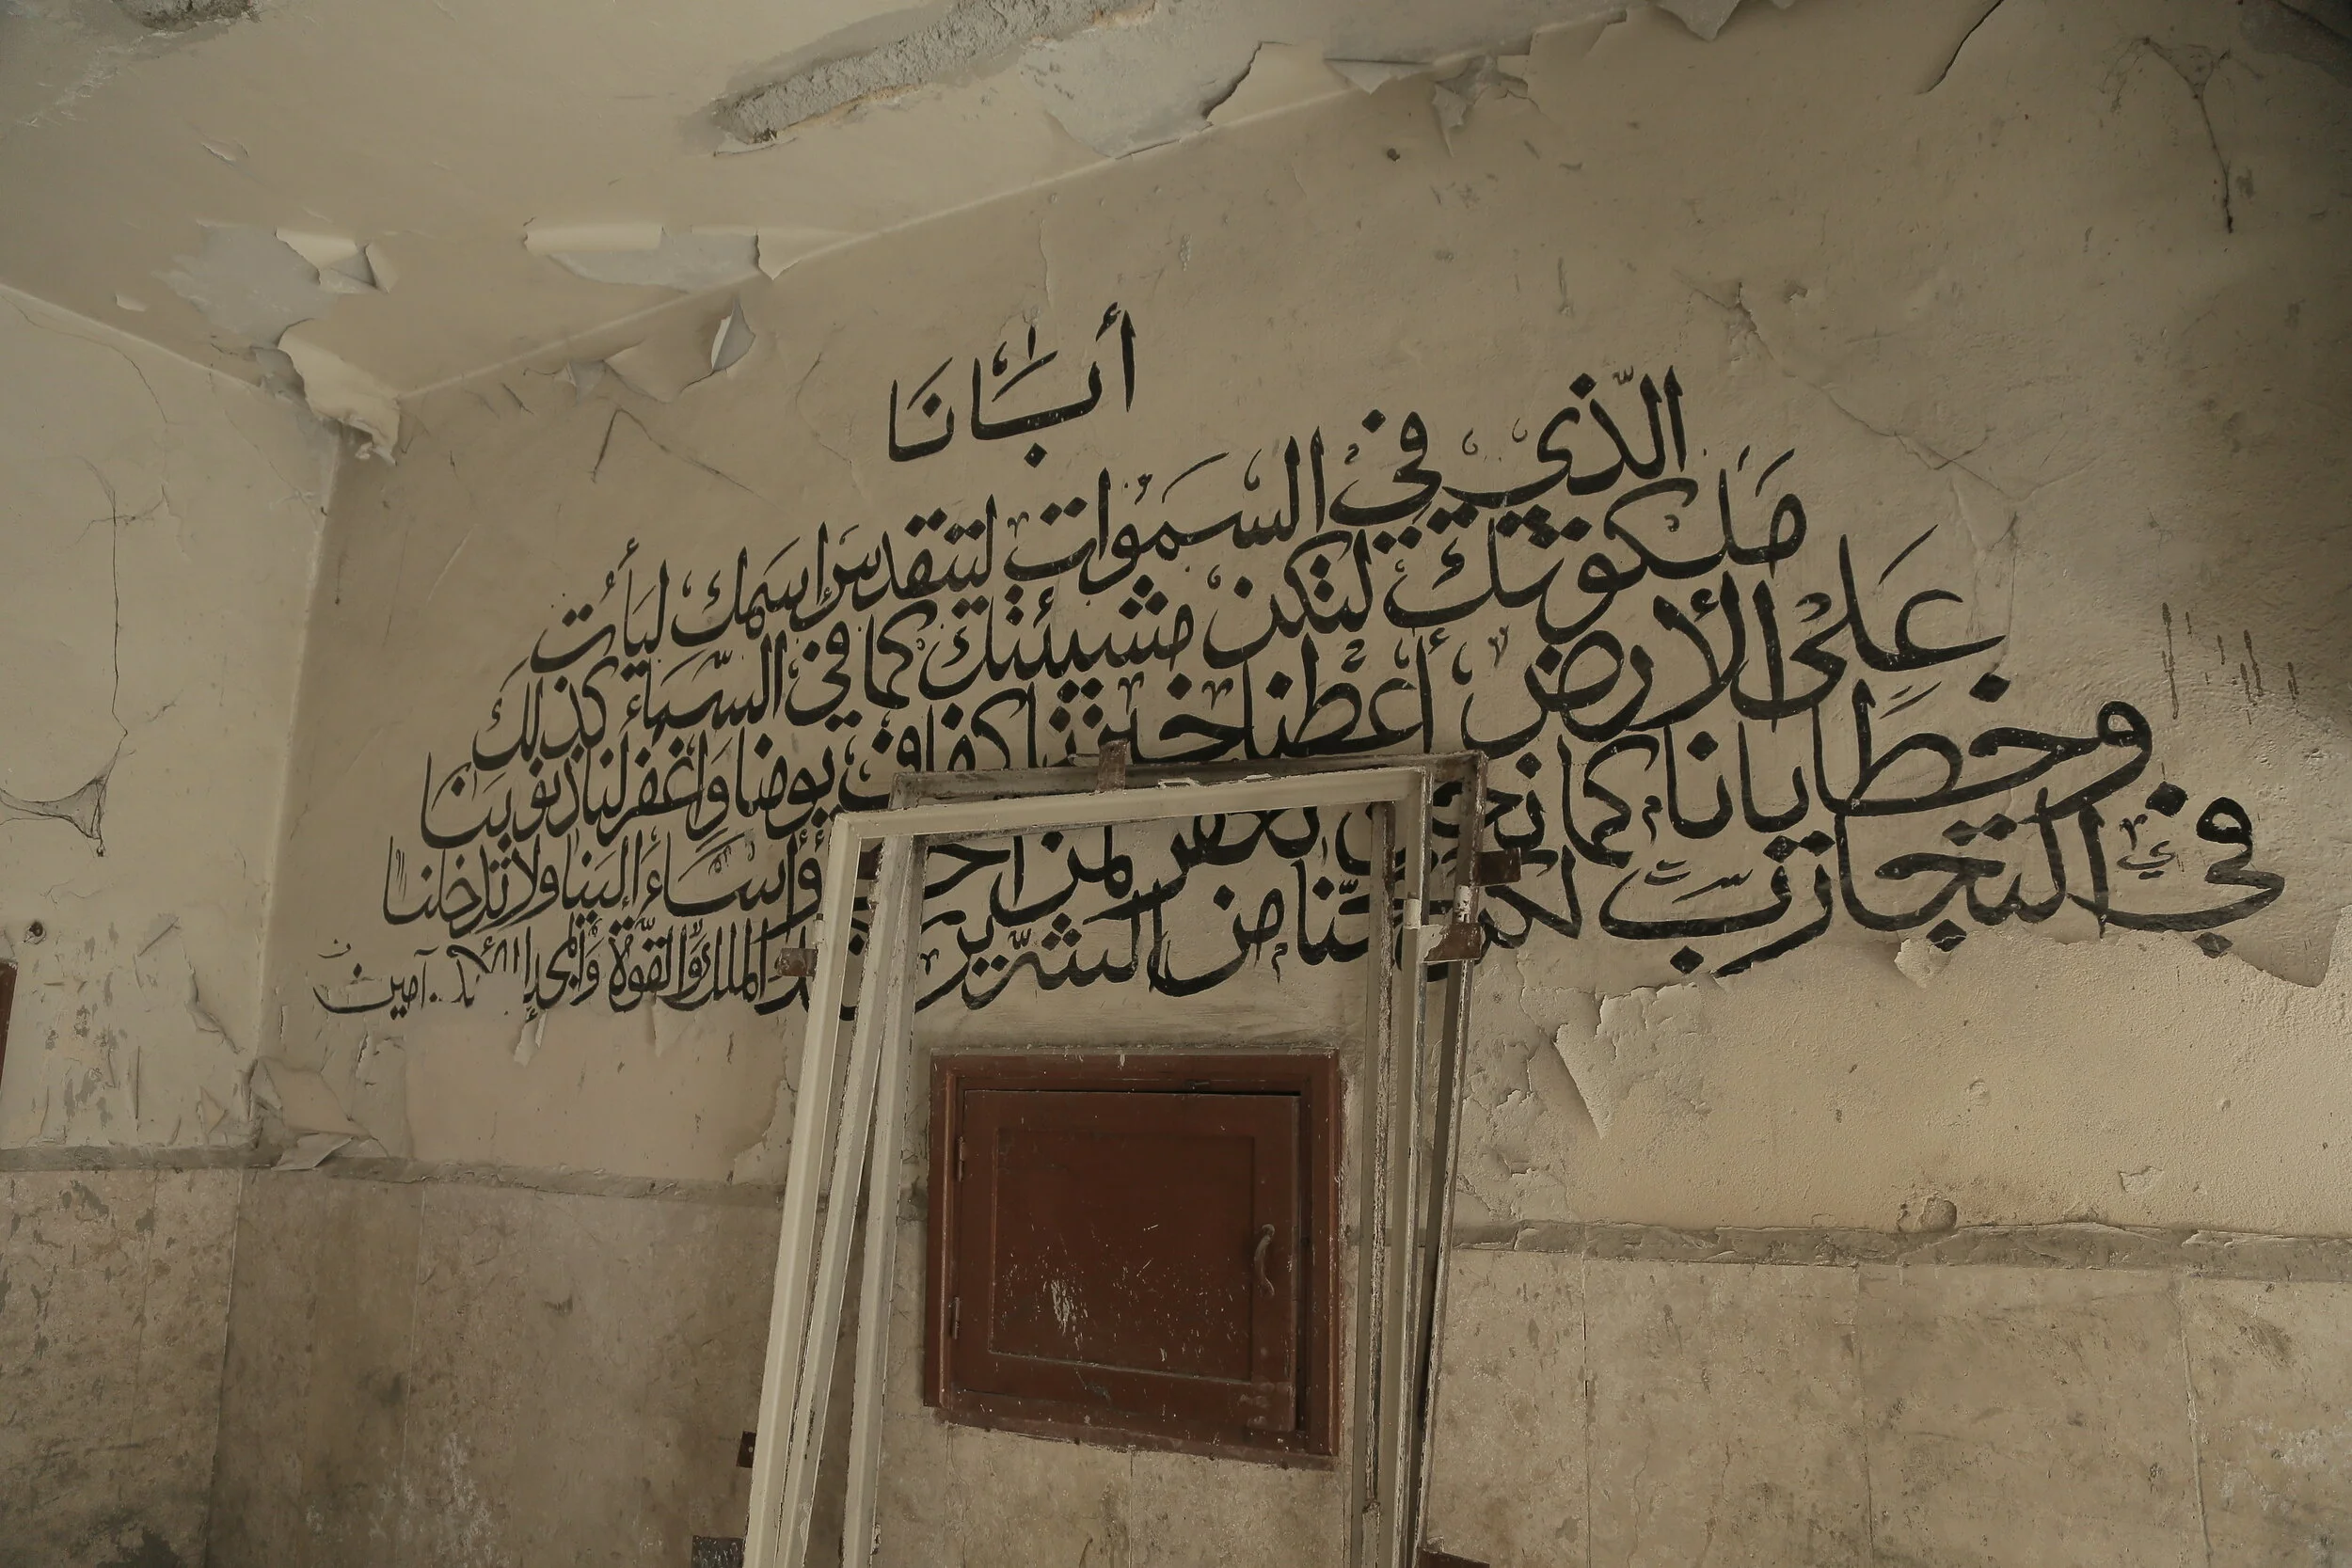 أَبَانَا
الّذي في السمَوات ليتقدس اسمك ليأت
ملكوتك لتكن مشيئتك كما في السماء كذلك
على الأرض أعطنا خبزنا كفاف يومنا واغفر لنا ذنوبنا
وخطايانا كما نحن نغفر لمن أساء إلينا ولا تدخلنا
في التجارب لكن نجّنا من الشرّير الملك والقوّة والمجد آمين